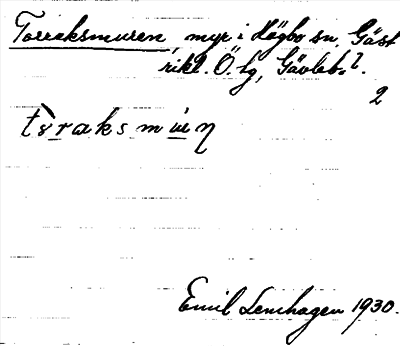 Torreksmuren, myr i Högbo sn, Gäst
rikl. Ö. tg, Gävleb. l.
2
Emil Lenhagen 1930.